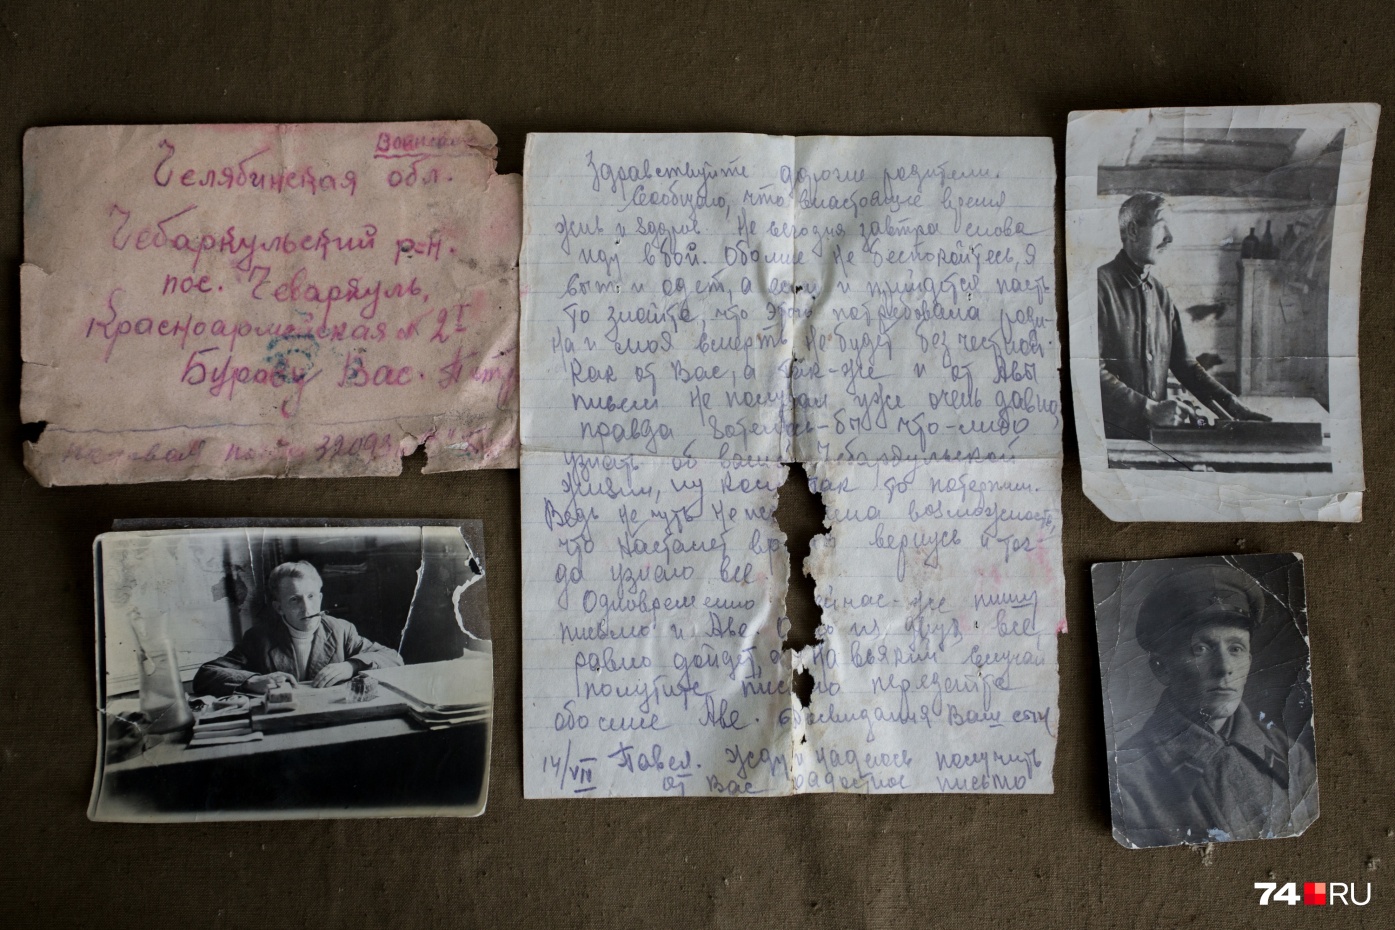 Воинское
Челябинская обл.
Чебаркульский р-н.
пос. Чебаркуль,
Красноармейская № 2
Бурову Вас.
32093
Здравствуйте дорогие родители.
Сообщаю, что внастоящие время
жив и здоров. Не сегодня завтра снова
иду в бой. Обомне не беспокойтесь, я
сыт и одет, а если и прийдется пасть
то знайте, что этого потребовала роди-
на и моя смерть не будет без честной.
Как от Вас, а так-же и от Авы
писем не получал уже очень давно,
правда хотелось-бы что-либо
узнать об вашей Чебаркульской
жизни, ну как то потерпим.
Ведь не чуть не возможность,
что настанет вернусь и тог
да узнаю все
Одновременно сейчас-же пишу
письмо и Аве из двух все,
равно дойдет, а на всякий случай
получите письмо передайте
обо мне Аве. досвидания Ваш сын
14/VII Павел. Жду и надеюсь получить
от Вас радостное письмо
74 RU